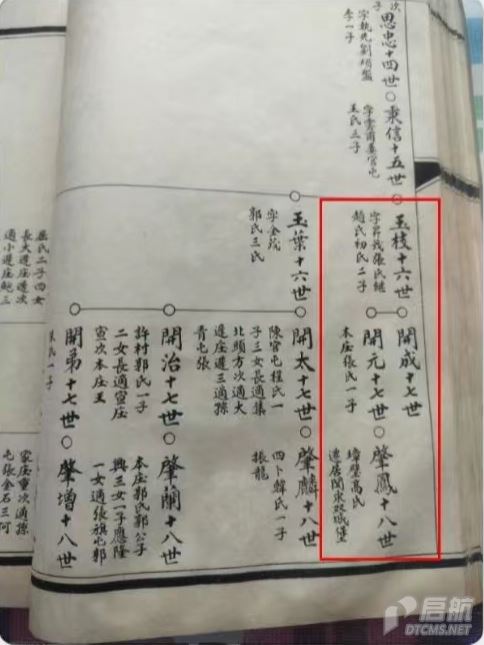 次子
思忠十四世
字執先劉胡盤
李一子
秉信十五世
字雲甫姜官屯
王氏三子
玉枝十六世
字昌茂張氏継
趙氏初氏二子
開成十七世
開元十七世
本庄張氏一子
肇鳳十八世
遠居関東双城堡
玉葉十六世
字金茂
郭氏三氏
開太十七世
陳官屯程氏一
子三女長適集
北頭方次適大
庄屈逰三適孫
青屯張
肇麟十八世
四卜韓氏一子
振龍
開治十七世
許村郭氏一子
二女長適宣庄
宣次本庄王
肇蘭十八世
本庄郭氏郭公子
興三女一子應隆
一女適張旗屯郭
開弟十七世
朱氏一子
肇増十八世
屈氏二子四女
長大逰庄逰次
適小逰庄鲍三
家庄董次適孫
屯張金石三河
启航
DTCMS.NET